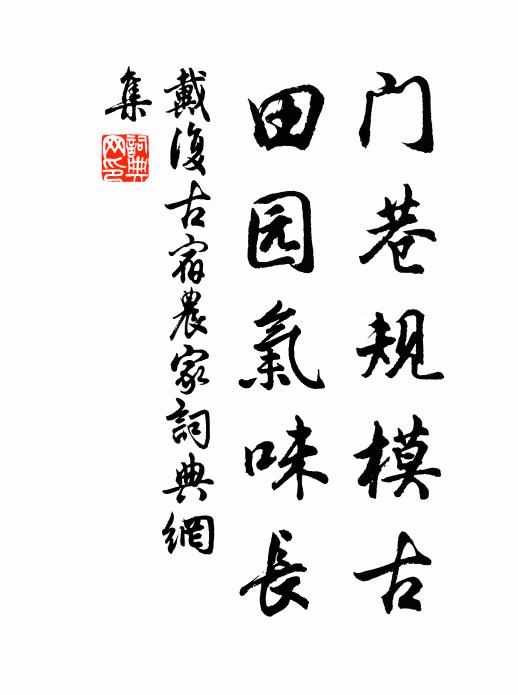 门巷规模古
田园氣味長
戴復古宿農家詞典網
集
詞典网印